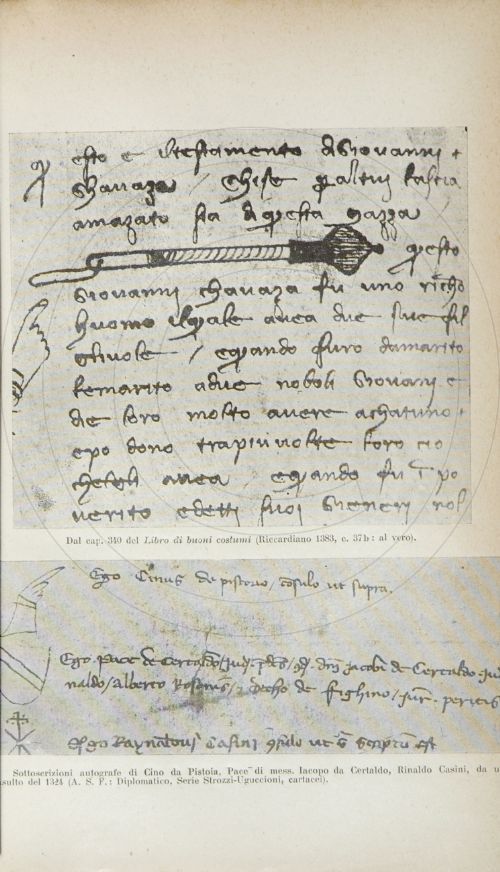 esto e iltestamento di Giovanni
chavaza / chise p altui lascia
amazato sia di questa mazza
questo
Giovanni chavaza fu uno richo
huomo ilquale avea due sue fil
gliuole / equando furo damarito
lemarito adue noboli Giovani e
die loro molto avere achatuno
epo dono trapiu volte loro cio
chetgli avea equando fu i po
verito edetti suoi Gieneri nol
Dal cap. 340 del Libro di buoni costumi (Riccardiano 1383, c. 37b: al vero).
Ego Cinus de pistorio, consulo ut supra.
Ego Pace de Certaldo, Jacobi de Certaldo
naldo, Alberto de fighino
Ego Raynaldus Casini ut scriptum est
Sottoscrizioni autografe di Cino da Pistoia, Pace di mess. Iacopo da Certaldo, Rinaldo Casini, da u
sulto del 1324 (A. S. F.: Diplomatico, Serie Strozzi-Uguccioni, cartacei).